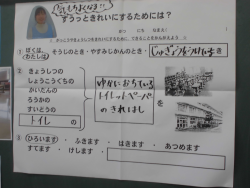 気もちよくなる!!
ずうっときれいにするためには?
① ぼくは、わたしは そうじのとき・やすみじかんのとき・じゅぎょうをうけているとき
②
きょうしつの
しょうこうぐちの
かいだんの
ろうかの
すいどうの
トイレの
ゆかにおちている
トイレットペーパー
のきれはし
を
③ ひろいます・ふきます・はきます・あつめます
すてます・けします・